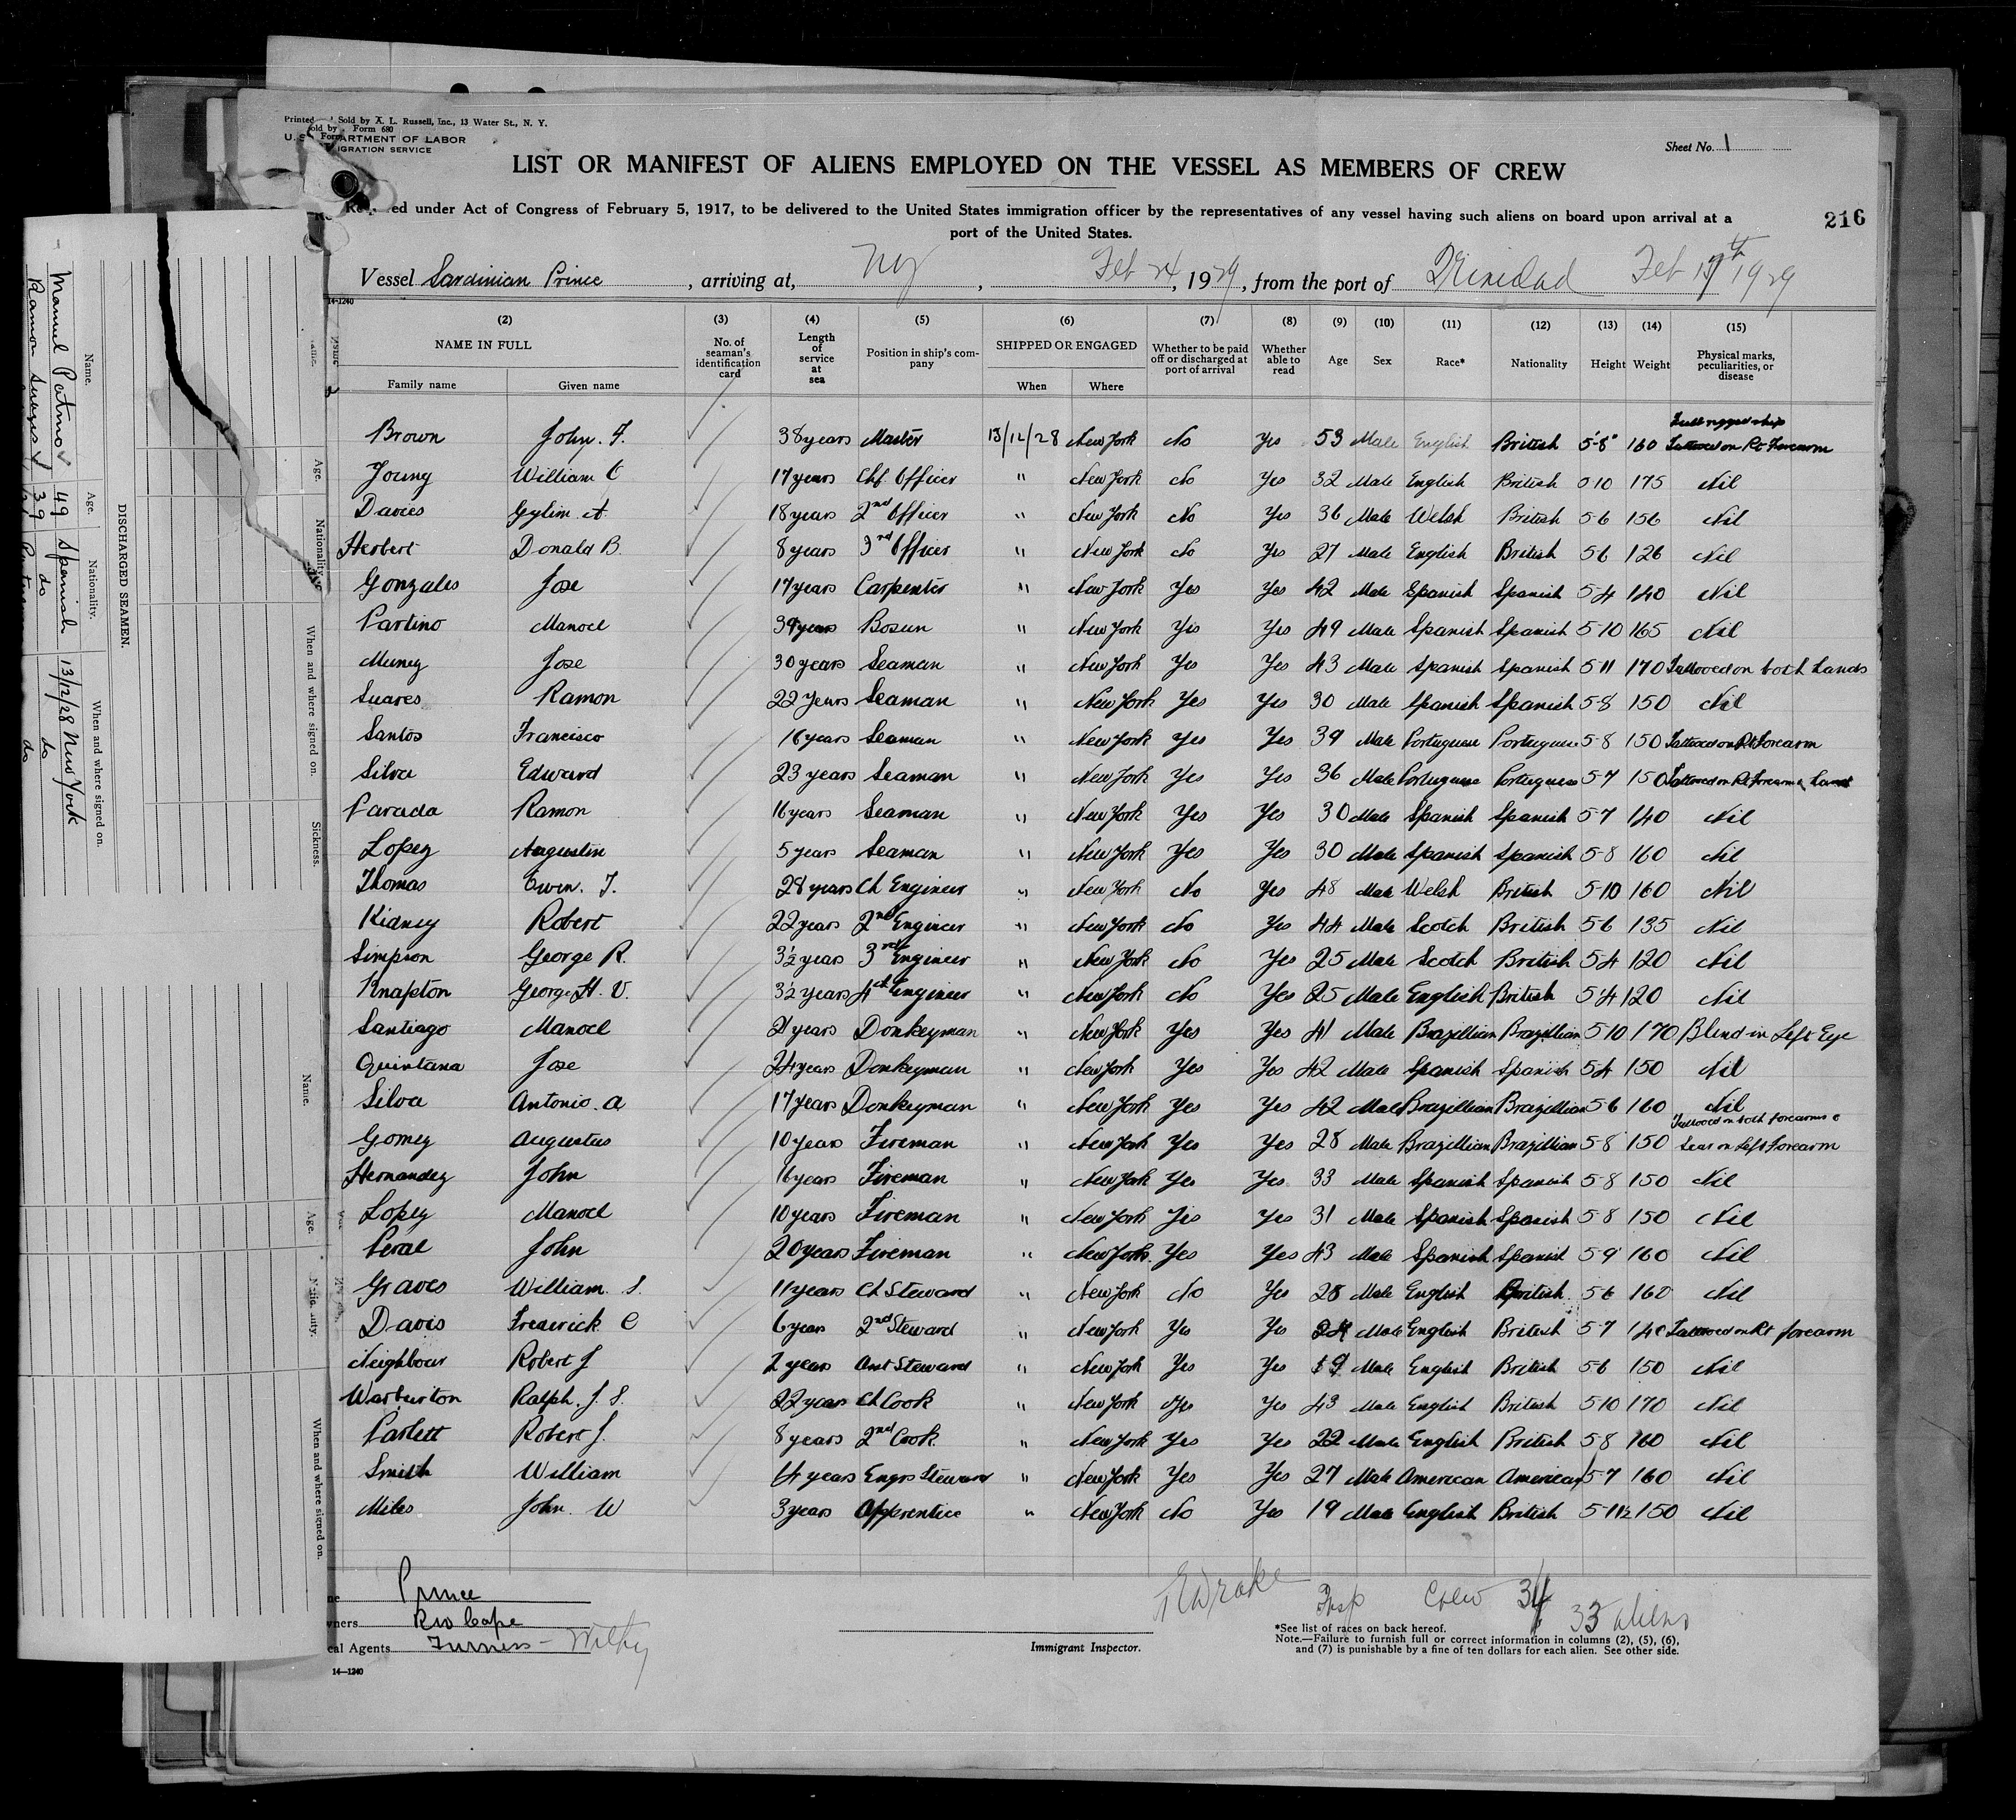 Printed Sold by A. L. Russell, Inc., 13 Water St., N. Y.
Sold by Form 680
U. S. DEPARTMENT OF LABOR
IGRATION SERVICE
Sheet No. 1
LIST OR MANIFEST OF ALIENS EMPLOYED ON THE VESSEL AS MEMBERS OF CREW
Required under Act of Congress of February 5, 1917, to be delivered to the United States immigration officer by the representatives of any vessel having such aliens on board upon arrival at a
port of the United States.
216
Vessel Sardinian Prince, arriving at, NY, Feb 24, 1929, from the port of Trinidad Feb 17th 1929
14-1240
(2) (3) (4) (5) (6) (7) (8) (9) (10) (11) (12) (13) (14) (15)
NAME IN FULL No. of seaman's identification card Length of service at sea Position in ship's company SHIPPED OR ENGAGED Whether to be paid off or discharged at port of arrival Whether able to read Age Sex Race* Nationality Height Weight Physical marks, peculiarities, or disease
Family name Given name When Where
Full rigged ship
Brown John. F. 38 years Master 13/12/28 New York No Yes 53 Male English British 5-8 160 Tattooed on Rt Forearm
Young William C 17 years Chf. Officer " New York No Yes 32 Male English British 5 10 175 Nil
Davies Gylim A. 18 years 2nd Officer " New York No Yes 36 Male Welsh British 5-6 156 Nil
Herbert Donald B. 8 years 3rd Officer " New York No Yes 27 Male English British 5-6 126 Nil
Gonzales Jose 17 years Carpenter " New York Yes Yes 42 Male Spanish Spanish 5-4 140 Nil
Partino Manoel 39 years Bosun " New York Yes Yes 49 Male Spanish Spanish 5-10 165 Nil
Muney Jose 30 years Seaman " New York Yes Yes 43 Male Spanish Spanish 5-11 170 Tattooed on both hands
Suares Ramon 22 Years Seaman " New York Yes Yes 30 Male Spanish Spanish 5-8 150 Nil
Santos Francisco 16 years Seaman " New York Yes Yes 39 Male Portuguese Portuguese 5-8 150 Tattooed on Rt Forearm
Silva Edward 23 years Seaman " New York Yes Yes 36 Male Portuguese Portuguese 5-7 150 Tattooed on Rt Forearm & hand
Parada Ramon 16 years Seaman " New York Yes Yes 30 Male Spanish Spanish 5-7 140 Nil
Lopez Augustin 5 years Seaman " New York Yes Yes 30 Male Spanish Spanish 5-8 160 Nil
Thomas Ewin. T. 28 years Ch Engineer " New York No Yes 48 Male Welsh British 5-10 160 Nil
Kidney Robert 22 years 2nd Engineer " New York No Yes 44 Male Scotch British 5-6 135 Nil
Simpson George R. 3½ years 3rd Engineer " New York No Yes 25 Male Scotch British 5-4 120 Nil
Knapton George H. V. 3½ years 4th Engineer " New York No Yes 25 Male English British 5-4 120 Nil
Santiago Manoel 21 years Donkeyman " New York Yes Yes 41 Male Brazillian Brazillian 5-10 170 Blind in Left Eye
Quintana Jose 24 years Donkeyman " New York Yes Yes 42 Male Spanish Spanish 5-4 150 Nil
Silva Antonio. A 17 years Donkeyman " New York Yes Yes 42 Male Brazillian Brazillian 5-6 160 Nil
Tattooed on both forearms &
Gomez Augustus 10 years Fireman " New York Yes Yes 28 Male Brazillian Brazillian 5-8 150 Scar on Left Forearm
Hernandez John 16 years Fireman " New York Yes Yes 33 Male Spanish Spanish 5-8 150 Nil
Lopez Manoel 10 years Fireman " New York Yes Yes 31 Male Spanish Spanish 5-8 150 Nil
Peral John 20 years Fireman " New York Yes Yes 43 Male Spanish Spanish 5-9 160 Nil
Graves William. S. 11 years Ch Steward " New York No Yes 28 Male English British 5-6 160 Nil
Davis Frederick C 6 years 2nd Steward " New York Yes Yes 24 Male English British 5-7 140 Tattooed on Rt forearm
Neighbour Robert J 2 years Asst Steward " New York Yes Yes 19 Male English British 5-6 150 Nil
Warburton Ralph. J. S. 22 years Ch Cook " New York Yes Yes 43 Male English British 5-10 170 Nil
Parlett Robert J. 8 years 2nd Cook " New York Yes Yes 22 Male English British 5-8 160 Nil
Smith William 4 years Engrs Steward " New York Yes Yes 27 Male American American 5-7 160 Nil
Miles John W 3 years Apprentice " New York No Yes 19 Male English British 5-11½ 150 Nil
ne Prince
wners Rio Cape
cal Agents Furness - Withy
14—1240
Drake Insp Crew 34 33 aliens
Immigrant Inspector.
*See list of races on back hereof.
Note.—Failure to furnish full or correct information in columns (2), (5), (6),
and (7) is punishable by a fine of ten dollars for each alien. See other side.
DISCHARGED SEAMEN.
Name. Age. Nationality. When and where signed on.
Manuel Patino 49 Spanish 13/12/28 New York
Ramon Suares 39 do do
do
Age. Nationality. When and where signed on. Sickness.
Name. Age. When and where signed on.